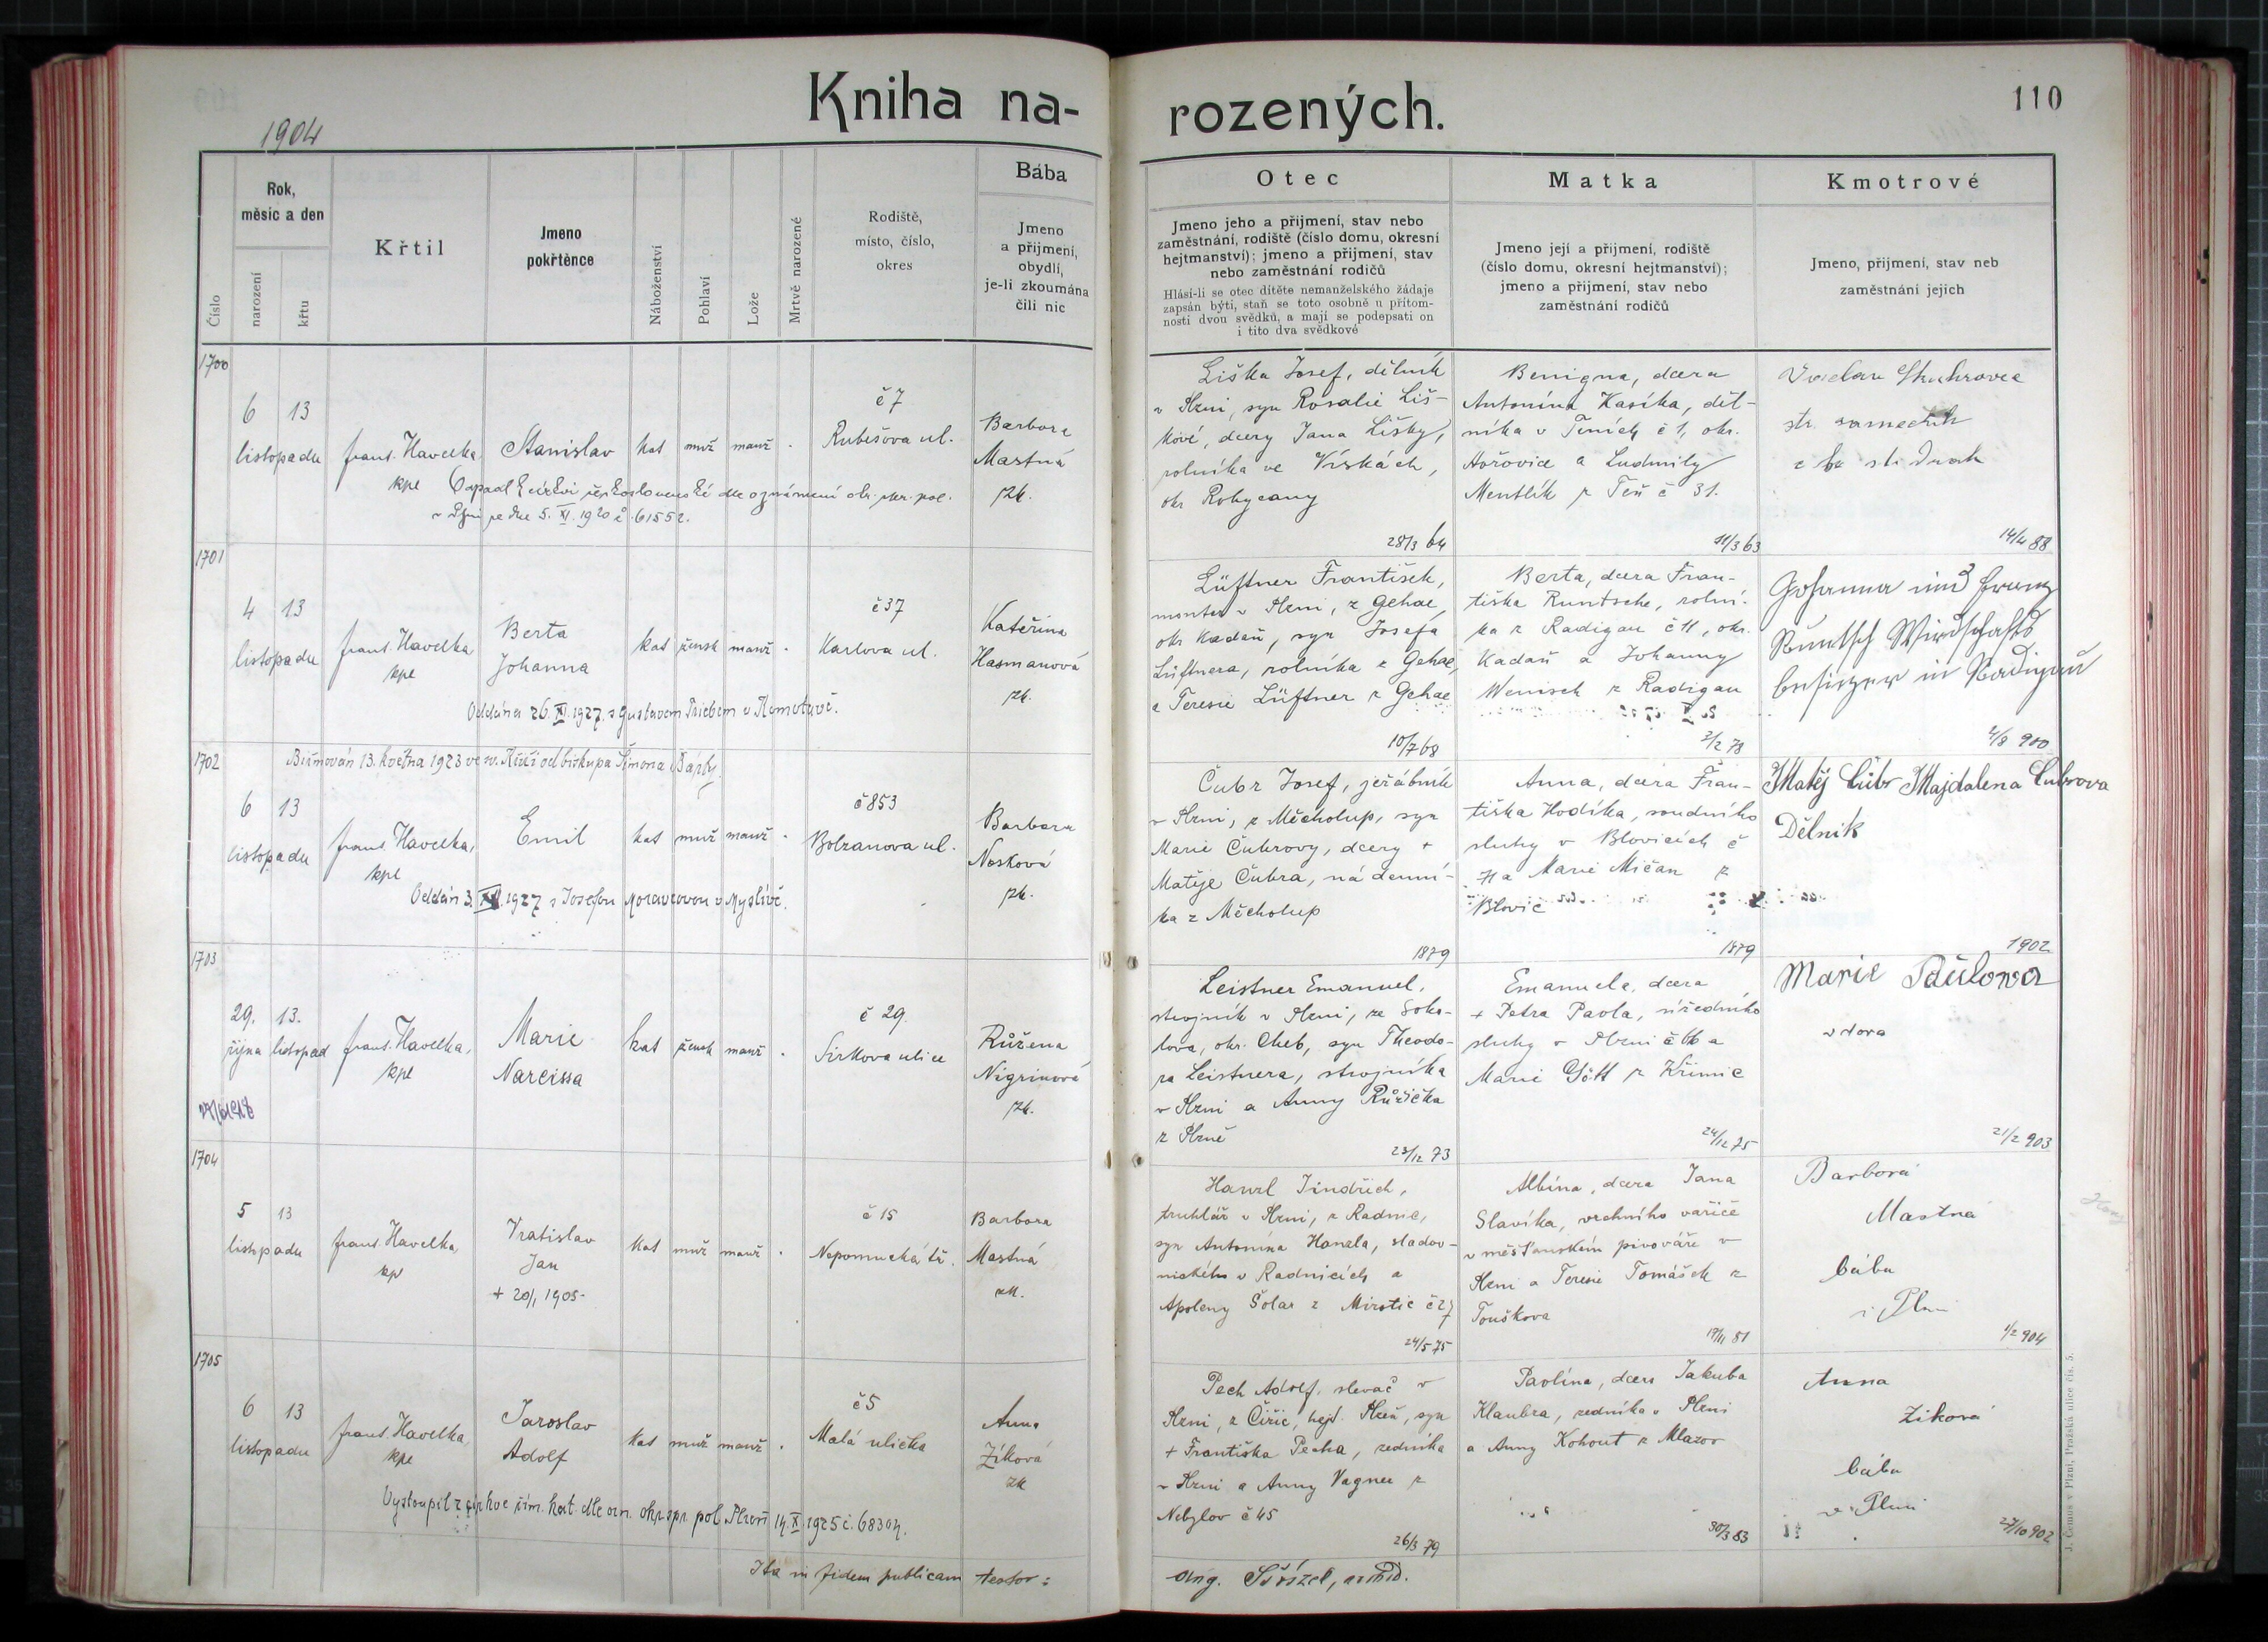 Kniha na-
rozených.
110
1904
Číslo
Rok,
měsíc a den
narození
křtu
Křtil
Jmeno
pokřtěnce
Náboženství
Pohlaví
Lože
Mrtvě narozené
Rodiště,
místo, číslo,
okres
Bába
Jmeno
a příjmení,
obydlí,
je-li zkoumána
čili nic
Otec
Jmeno jeho a příjmení, stav nebo
zaměstnání, rodiště (číslo domu, okresní
hejtmanství); jmeno a příjmení, stav
nebo zaměstnání rodičů
Hlásí-li se otec dítěte nemanželského žádaje
zapsán býti, staň se toto osobně u přítom-
nosti dvou svědků, a mají se podepsati on
i tito dva svědkové
Matka
Jmeno její a příjmení, rodiště
(číslo domu, okresní hejtmanství);
jmeno a příjmení, stav nebo
zaměstnání rodičů
Kmotrové
Jmeno, příjmení, stav neb
zaměstnání jejich
1700
6 13
listopadu
frant. Havelka
kpl
Stanislav
kat muž manž
č 7
Rubešova ul.
Barbora
Mastná
zk.
Odpadl k církvi československé dle oznámení okr. spr. pol.
v Plzni ze dne 5. XI. 1920 č. 61552.
Liška Josef, dělník
v Plzni, syn Rosalie Liš-
kové, dcery Jana Lišky,
rolníka ve Vískách,
okr Rokycany
28/3 64
Benigna, dcera
Antonína Kasíka, děl-
níka v Teních č 1, okr.
Hořovice a Ludmily
Mentlík z Teň č 31.
11/3 63
14/4 88
1701
4 13
listopadu
frant. Havelka
kpl
Berta
Johanna
kat žensk manž
č 37
Karlova ul.
Kateřina
Hasmanová
zk.
Oddána 26. XI. 1927. s Gustavem Triebem v Komotově.
Lüftner František,
montér v Plzni, z Gehae,
okr Kadaň, syn Josefa
Lüftnera, rolníka z Gehae,
a Teresie Lüftner z Gehae
10/7 68
Berta, dcera Fran-
tiška Runtsche, rolní-
ka z Radigau č 11, okr.
Kadaň a Johanny
Wenisch z Radigau
2/2 78
Johanna und Franz
Runtsch Wirdschafts
besitzer in Radigau
4/8 900
1702
Biřmován 13. května 1923 ve sv. Kříži od biskupa Šimona Bárty.
6 13
listopadu
frant. Havelka,
kpl
Emil
kat muž manž
č 853
Bolzanova ul.
Barbora
Nosková
zk.
Oddán 3. XII. 1927 s Josefou Moravcovou v Myslívě.
Čubr Josef, jeřábník
v Plzni, z Měcholup, syn
Marie Čubrovy, dcery +
Matěje Čubra, nádenní-
ka z Měcholup
1879
Anna, dcera Fran-
tiška Hodíka, soudního
sluhy v Blovicích č
71 a Marie Mičan z
Blovic
1879
Matěj Cubr Majdalena Cubrova
Dělnik
1902
1703
29. 13.
října listopad
frant. Havelka,
kpl
Marie
Narcissa
kat žensk manž
č 29.
Sirkova ulice
Růžena
Nigrinová
zk.
Leistner Emanuel,
strojník v Plzni, ze Soko-
lova, okr. Cheb, syn Theodo-
ra Leistnera, strojníka
v Plzni a Anny Růžička
z Plzně
23/12 73
Emanuela, dcera
+ Petra Pavla, úředního
sluhy v Plzni č 66 a
Marie Gött z Křimic
24/12 75
Marie Paulova
vdova
21/2 903
1704
5 13
listopadu
frant. Havelka,
kpl
Vratislav
Jan
+ 20/1 1905
kat muž manž
č 15
Nepomucká tř.
Barbora
Mastná
zk.
Hanzl Jindřich,
truhlář v Plzni, z Radnic,
syn Antonína Hanzla, sladov-
nického v Radnicích a
Apoleny Šolar z Mirotic č 27
24/5 75
Albína, dcera Jana
Slavíka, vrchního vařiče
v měšťanském pivováře v
Plzni a Teresie Tomášek z
Touškova
17/11 81
Barbora
Mastna
bába
v Plzni
1/2 904
1705
6 13
listopadu
frant. Havelka,
kpl
Jaroslav
Adolf
kat muž manž
č 5
Malá ulička
Anna
Zíková
zk
Vystoupil z církve řím. kat. dle ozn. okr. spr. pol. Plzeň 14. X. 1925 č. 68304.
Pech Adolf, slevač v
Plzni, z Čižic, hejt. Plzeň, syn
+ Františka Pecha, zedníka
v Plzni a Anny Vagner z
Nebylov č 45
26/3 79
Pavlína, dcera Jakuba
Klaubra, zedníka v Plzni
a Anny Kohout z Mlazov
30/3 83
Anna
Ziková
bába
v Plzni
27/10 902
Ita in fidem publicam testor:
J. Černos v Plzni, Pražská ulice čís. 5.